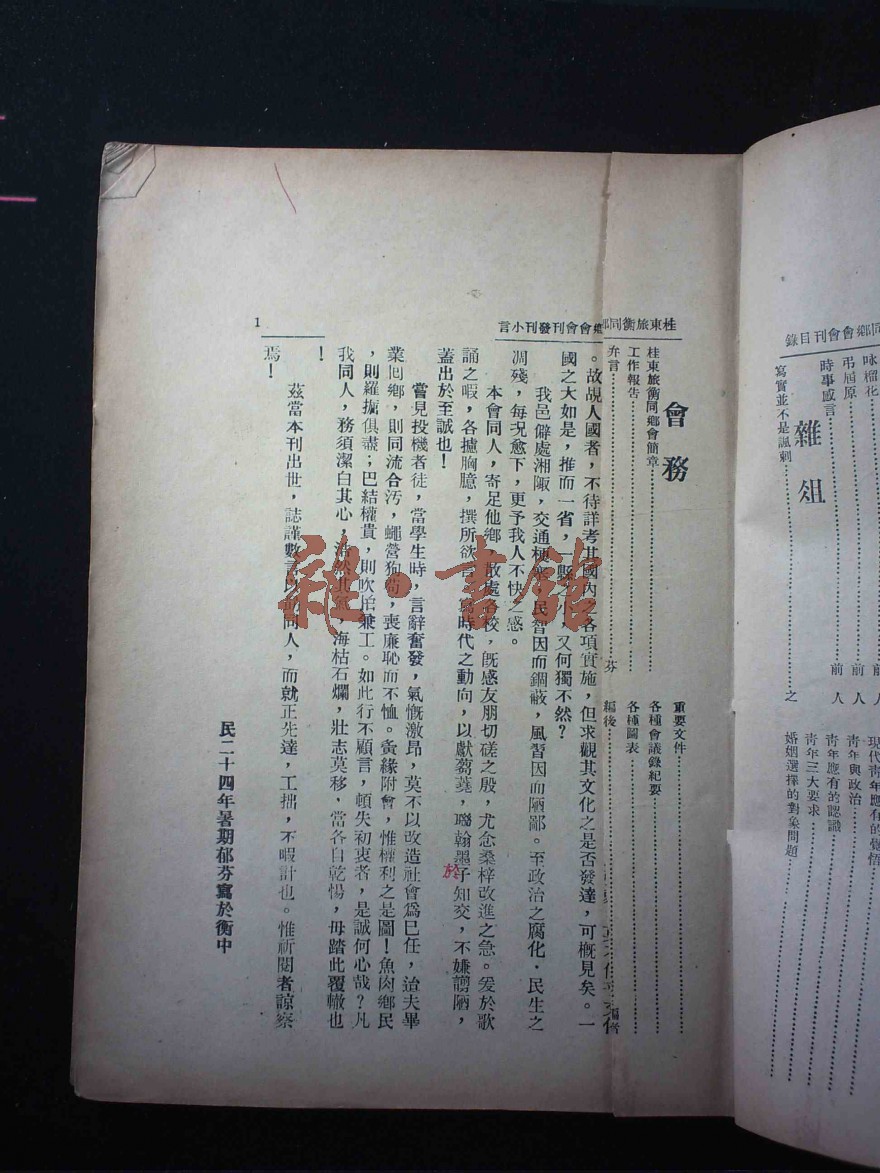 同鄉會會刊目錄
咏榴花⋯⋯前人
弔屈原⋯⋯前人
時事感言⋯⋯前人
雜俎
寫實並不是諷刺⋯⋯之
現代青年應有的覺悟
青年與政治⋯⋯
青年應有的認識⋯⋯
青年三大要求⋯⋯
婚姻選擇的對象問題⋯⋯
桂東旅衡同鄉會會刊發刊小言
會務
桂東旅衡同鄉會簡章⋯⋯
工作報告⋯⋯
弁言⋯⋯芬
重要文件⋯⋯
各種會議錄紀要⋯⋯
各種圖表⋯⋯
編後⋯⋯編者
。故覘人國者,不待詳考其國內之各項實施,但求觀其文化之是否發達,可概見矣。一
國之大如是,推而一省,一縣之小,又何獨不然?
我邑僻處湘陬,交通梗塞,民智因而錮蔽,風習因而陋鄙。至政治之腐化,民生之
凋殘,每况愈下,更予我人不快之感。
本會同人,寄足他鄉,散處各校,旣感友朋切磋之殷,尤念桑梓改進之急。爰於歌
誦之暇,各攄胸臆,撰所欲言,爲時代之動向,以獻芻蕘,聯翰墨於知交,不嫌謭陋,
蓋出於至誠也!
嘗見投機者徒,當學生時,言辭奮發,氣慨激昂,莫不以改造社會爲巳任,迨夫畢
業囘鄉,則同流合污,蠅營狗苟,喪廉恥而不恤。夤緣附會,惟權利之是圖!魚肉鄉民
,則羅掘俱盡;巴結權貴,則吹拍兼工。如此行不顧言,頓失初衷者,是誠何心哉?凡
我同人,務須潔白其心,浩然其氣,海枯石爛,壯志莫移,當各自乾惕,毋踏此覆轍也
!
茲當本刊出世,誌謹數言以勗同人,而就正先達,工拙,不暇計也。惟祈閱者諒察
焉!
民二十四年暑期郁芬寫於衡中
1
雜·書館